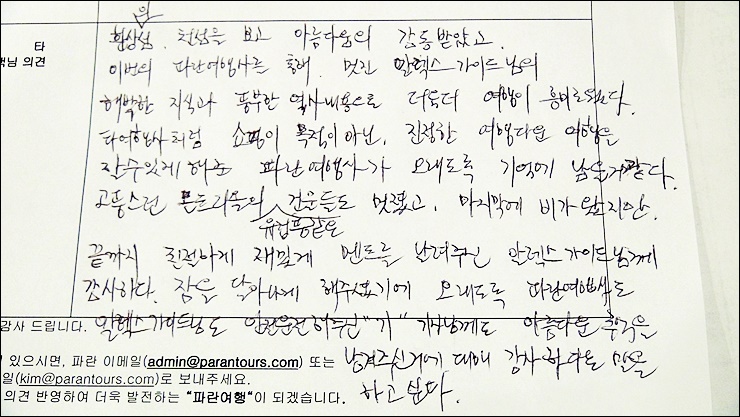 의
환상섬. 천섬을 보고 아름다움의 감동받았고.
타
객님 의견
이번의 파란여행사를 통해. 멋진 알렉스가이드님의
해박한 지식과 풍부한 역사내용으로 더욱더 여행이 흥미로웠다.
타여행사처럼 쇼핑이 목적이아닌, 진정한 여행다운 여행을
할수있게 해준 파란여행사가 오래도록 기억에 남을거같다.
고풍스런 몬트리올의 건물들도 멋졌고. 마지막에 비가 왔지만.
유럽풍같은
끝까지 친절하게 재밌게 멘트를 날려주신 알렉스가이드님께
감사하다. 잠을 달아나게 해주셨기에 오래도록 파란여행사도
감사 드립니다. 알렉스가이드님도 안전운전해주신 "기" 기사님께도 아름다운 추억을
있으시면, 파란 이메일(admin@parantours.com) 또는 남겨주신거에 대해 감사하다는 말을
일(kim@parantours.com)로 보내주세요. 하고 싶다.
의견 반영하여 더욱 발전하는 "파란여행"이 되겠습니다.